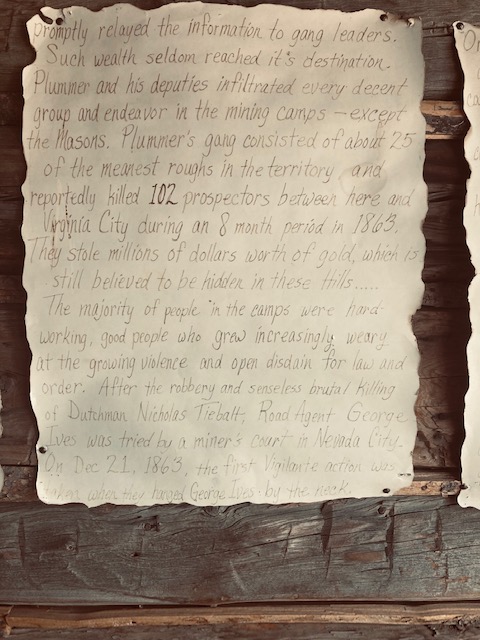 promptly relayed the information to gang leaders.
Such wealth seldom reached it's destination.
Plummer and his deputies infiltrated every decent
group and endeavor in the mining camps — except
the Masons. Plummer's gang consisted of about 25
of the meanest roughs in the territory and
reportedly killed 102 prospectors between here and
Virginia City during an 8 month period in 1863.
They stole millions of dollars worth of gold, which is
still believed to be hidden in these Hills.....
The majority of people in the camps were hard-
working, good people who grew increasingly weary
at the growing violence and open disdain for law and
order. After the robbery and senseless brutal killing
of Dutchman Nicholas Tiebalt, Road Agent George
Ives was tried by a miner's court in Nevada City.
On Dec 21, 1863, the first Vigilante action was
taken when they hanged George Ives - by the neck.